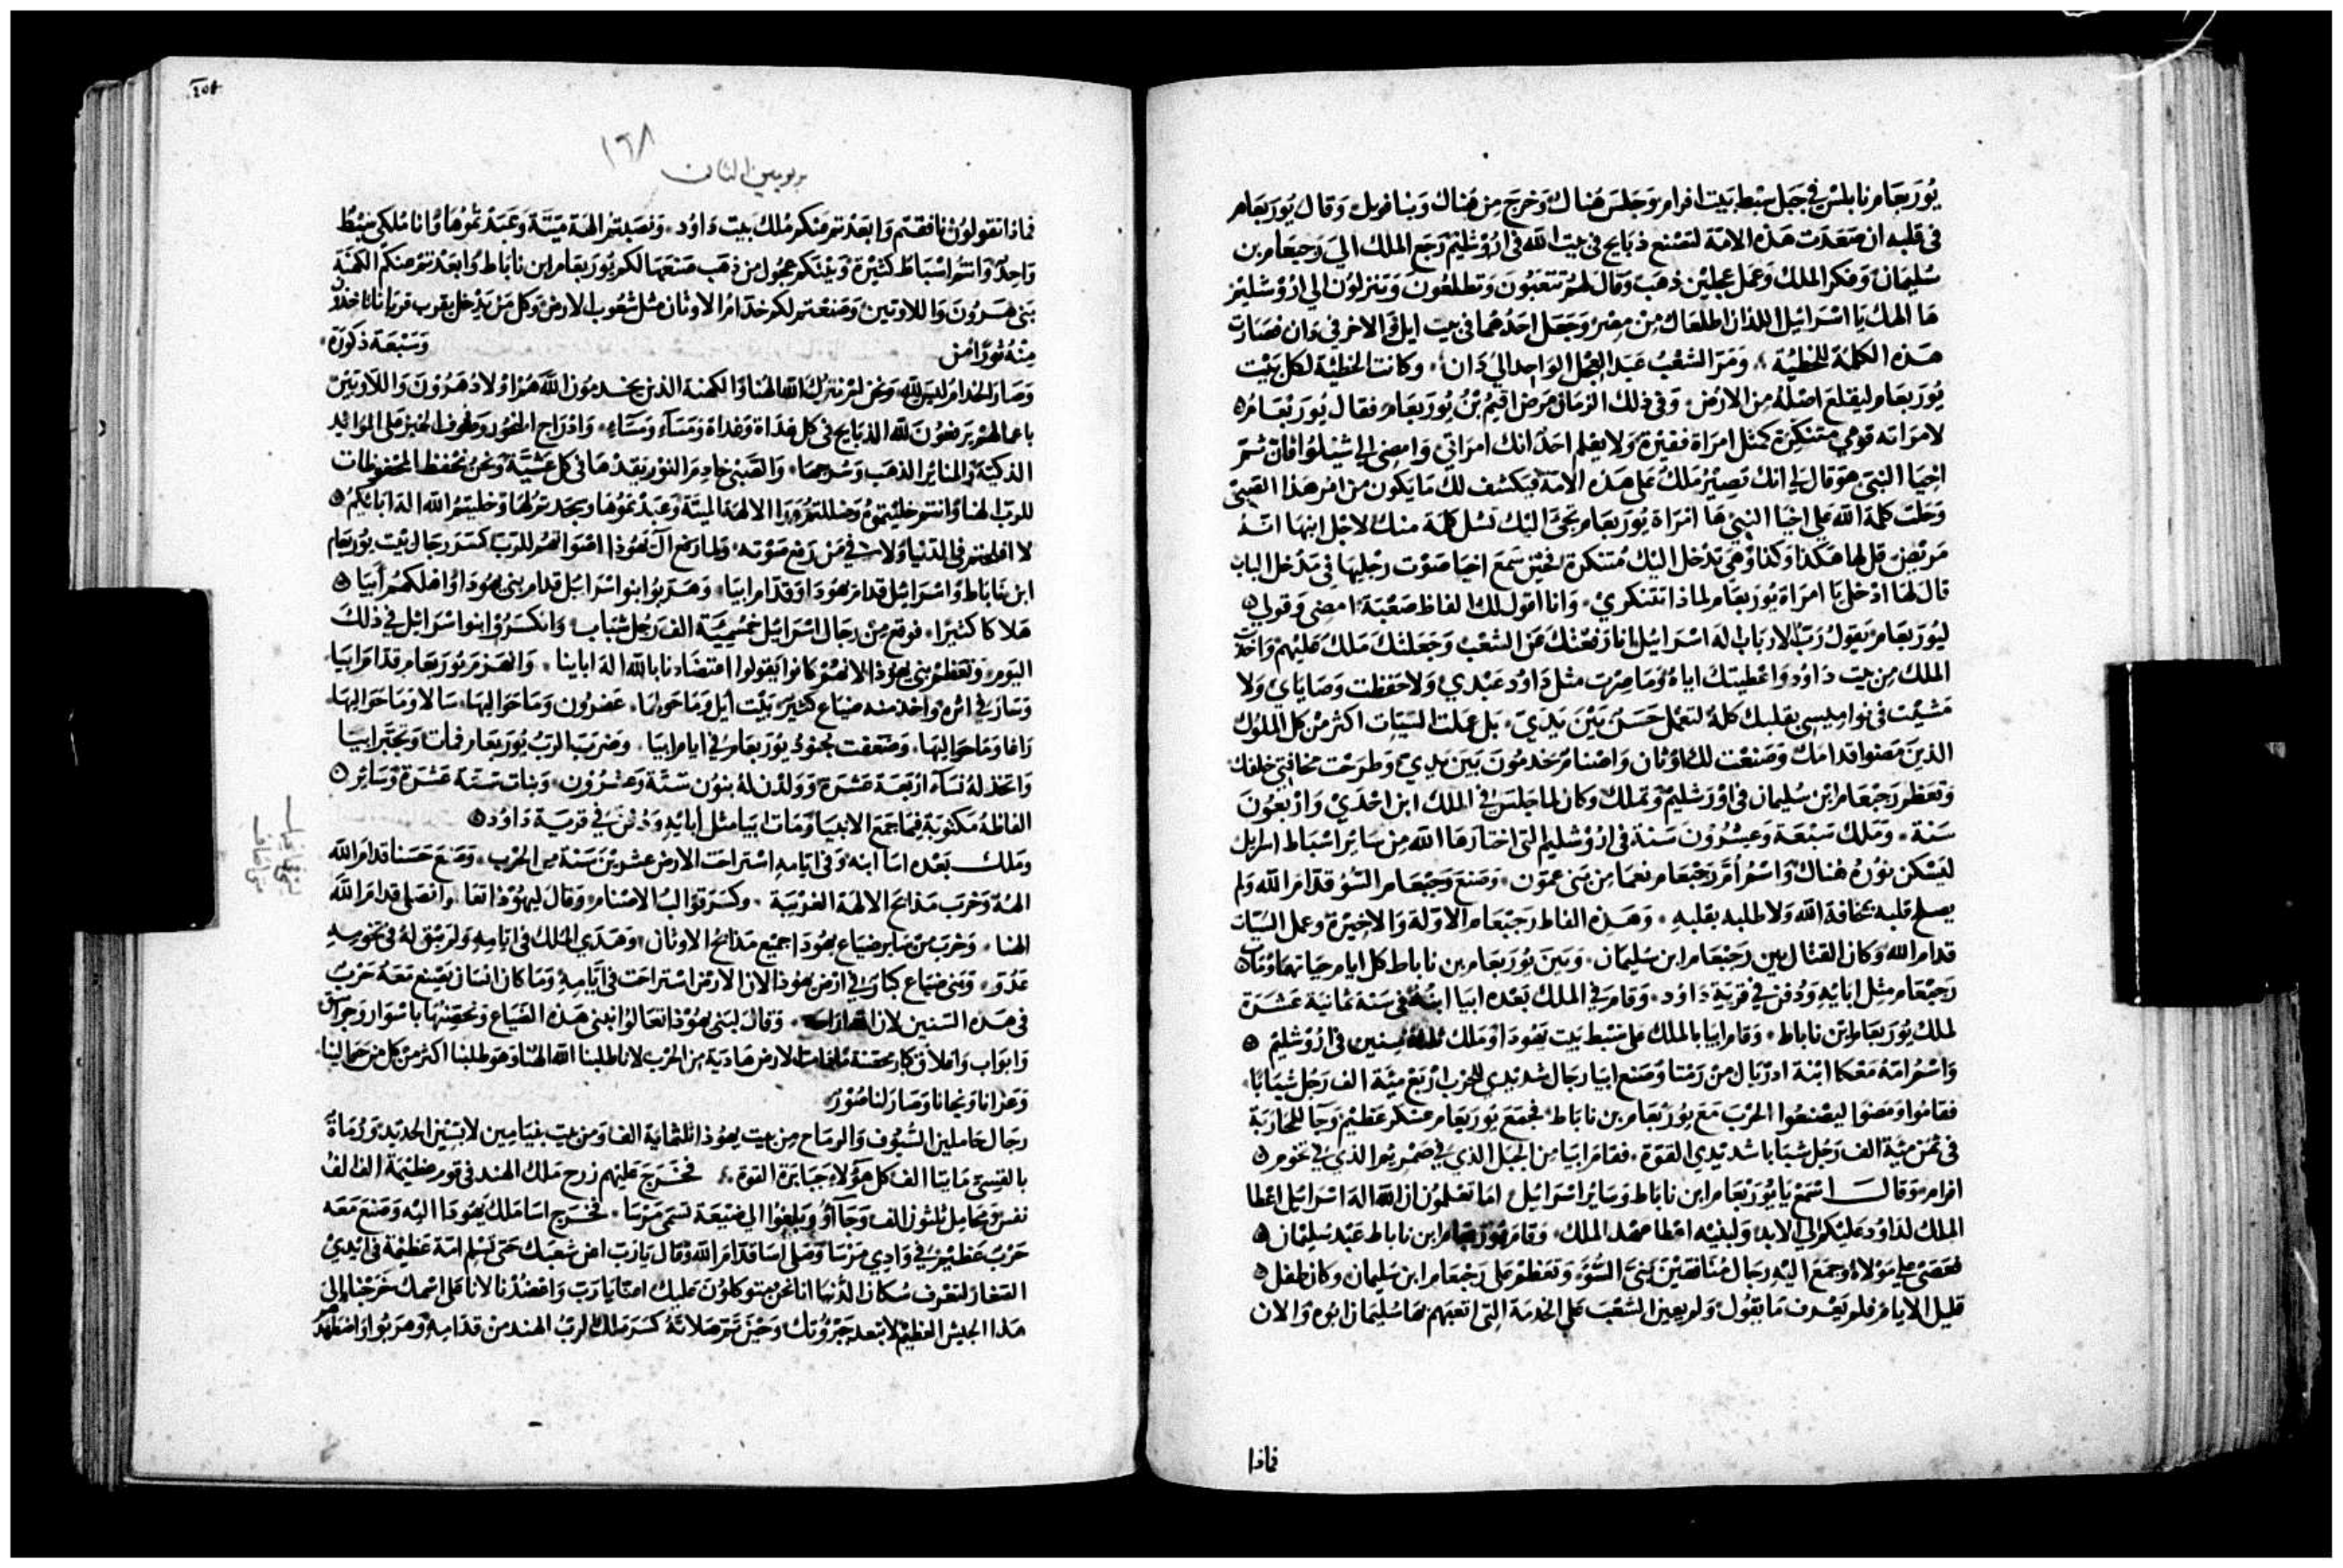 يُورَبعَام نابلس في جَبل سِبْط بَيت افرام وَجَلسَ هُناك وَخرَجَ مِن هُناك وَبنا فويل وَقال يُورَبعَام
في قلبه ان صَعَدَت هَذه الامّة لتصْنع ذبَايح في بيت الله في اوُرْشليْم رَجَع الملك الي رَحبعَام بن
سُليمانْ وَفكر الملك وَعمل عجلين ذهَبْ وَقال لهمْ تتعَبُونَ وَتطلعُونَ وَتنزلوُن الي اوُرْشليْم
هَا الهك يَا اسْرَائيل اللذان اطلعَاك مِنْ مِصْر وَجَعَل احَدُهما في بيت ايل وَالاخر في دَان فصَارَت
هَذه الكلمَة للخطيّة وَمرّ الشعْبُ عَبد العِجْل الوَاحِد اليْ دَان وكانت الخطيْة لكل بَيْت
يُورَبعَام ليقلع اصْلهُ مِن الارْض وَفي ذلك الزمَان مَرض اقيم بْنُ يُورَبعَام فقال يُورَبْعَامُ
لامرَاته قومي متنكرَة كمثل امرَاة فقيْرَة وَلا يعْلم احَدْ انك امرَاتي وَامضي الي شيْلوُا فان ثمّ
اخِيَا النبيّ هوَ قال لي انك تصِيْرُ مَلك عَلى هَذه الامّة فيكشف لك مَا يكون من امْر هَذا الصَبيّ
وَحَلت كلمَة الله عَلي اخيَا النبيّ هَا امْرَاة يُورَبعَام تجيّ اليْك تسْل كلمَة منك لاجْل ابنهَا انّهُ
مَريْضْ قل لها هَكذا وَكذا وَهي تدْخل اليْك مُتنكرَة فحيْن سَمَع اخيَا صَوْت رجْليهَا في مَدْخل البابْ
قال لهَا ادْخلي يَا امرَاة يُورَبعَام لماذا تتنكري وَانا اقول لك الفاظ صَعْبَة امضي وَقولي
ليُورَبعَام يَقولُ رَبّ الارْبَابْ الهَ اسْرَائيل انا رَفعْتك مِن الشعْب وَجَعَلتك مَلك عَليْهم وَاخذت
الملك مِن بيت دَاوُد وَاعْطيتك اياهُ وَمَا صِرْت مثل دَاوُد عَبْدي وَلا حَفظت وَصَايَاي وَلا
مَشيْت في نوَاميسي بقلبك كلهُ لتعْمل حَسَنْ بَيْنَ يَدَيّ بل عملت السيّات اكثر مْن كل الملوُك
الذينَ مَضوا قدامَك وَصَنعْت لك اوْثان وَاصْنام تخدمُونَ بَين يَديّ وَطرَحْت مخافتي خلفك
وَتعَظم رَحبْعَام ابن سُليمَان في اوُرْشليْم وَتملك وَكان لما جَلسَ في الملك ابن احْدَيْ وَارْبعُونَ
سَنة وَمَلك سَبْعَة وَعشْرُونَ سَنة في اوُرْشليْم التي اختارَهَا الله مِن سَائر اسْبَاط اسرايل
ليَسْكن نوُرهُ هُناك وَاسْمُ امُّ رَحْبعَام نعمَا مِن بَني عمّون وَصَنعَ رَحْبعَام السّؤْ قدامَ الله وَلم
يصلح قلبه بمخافة الله وَلا طلبه بقلبهِ وَهَذه الفاظ رَحْبعَام الاوّلة وَالاخِيرَة وعمل السيّات
قدام الله وَكان القتال بين رَحْبعَام ابن سُليمَان وَبَينَ يُورَبعَام بن ناباط كل ايام حياتهما وَمَات
رَحْبعَام مِثل ابَايهِ وَدُفنَ في قريَة دَاوُد وَقامَ في الملك بَعْده ابيَا ابنهُ في سَنة ثمانيَة عَشَرَة
لملك يُورَبعَام بْن ناباط وَقام ابيَا بالملك عَلى سَبْط بَيت يَهُودَا وَملك ثلثة سِنين في اوُرْشليْم
وَاسْمُ امّهُ مَعكا ابْنة ادرْيَال مِنْ رَمتا وَصَنع ابيَا رجَال شَديْدي الحرْب ارْبَع ميّة الف رَجُل شبَابًا
فقامُوا وَمضوا ليصْنعُوا الحرْبَ مَعَ يوُرَبْعَام بن نابَاط فجمَعَ يُورَبعَام عَسْكر عَظيْم وَجَا للمحَارَبَة
في ثمن ميّة الف رَجُل شبَابا شديْدي القوّة فقامَ ابيَا مِن الجبَل الذي في ضمريم الذي في تخوم
افرام وَقالَ اسْمَعْ يَا يُورَبْعَام ابن نابَاط وَسَايْر اسْرَائيل امَا تعْلموُن ان الله الهَ اسْرَائيل اعْطا
الملك لدَاوُد عَليكم الي الابد وَلبنيْه اعْطا عَهْد الملك وَقام يُورَبْعَام ابن ناباط عَبْد سُليمَان
فعَصَى علي مَوْلاهُ وَجمَعَ اليْهِ رجَال مُنافقيْن بَنيّ السُّوَّ وَتعَظم عَلى رَحْبعَام ابن سُليمان وكان طفل
قليل الايامْ فلم يَعْرف مَا يقُولْ وَلم يعين الشعْب عَلي الخدمَة التي اتعبَهم بهَا سُليمَان ابُوه وَالان
فماذا
١٦٨
بريومين الثان
فماذا تقولونْ نافقتم وَابعَدْتم مَنكم مُلك بَيت دَاوُد وَنصَبتمُ الهَة مَيّتَة وَعَبَدْتموُهَا وَانا مُلكي سَبْط
وَاحِد وَانتمُ اسْبَاط كثيْرَة وَمَعْكم عجُول من ذهَب صَنعَهَا لكم يُورَبعَام ابن نابَاط وَابعَدْتمُ منكم الكهَنة
بَني هَرُونَ وَاللاوتينْ وَصَنعْتم لكم خدام الاوثان مثل شعُوب الارض وَكل مَنْ يَدْخل يقرب قربَانا ناخذ
مِنْهُ ثورًا مَن وَسَبْعَة ذكورَة
وَصَارَ الخدام ليسَ لله وَنحن لم نترك الله الهنا وَالكهنة الذين يخدمُون الله همُ اوْلادُ هَرُوْنَ وَاللاوتين
باعمالهم يَرفعُونَ لله الذبَايح في كل غدَاة وَغدَاة وَمَسَآء وَمَسَآءِ وَادْرَاج البخور وَصُفوف الخبز عَلى المَوَائيد
الذكيّة وَالمنائر الذهَب وَسُرجهَا وَالصَبيْ خادِم النّور يَقدْهَا في كل عَشيّة وَنحنْ نحْفظ المحفوظات
للربّ الهنا وَانتم خليْتموهُ وَضللتم وَرَا الالهة الميتة وَعَبدْتموُهَا وَسجَدتم لهَا وَخليتمُ الله الهَ ابَائكمُ
لا افلحتم في الدّنيَا وَلا في مَن رَفع صَوْته وَلما رَفع آلَ يَهُوذا اصْوَاتهمُ للرَبّ كسَرَ رجَال بيْت يُورَبعَام
ابن نابَاط وَاسْرَائيْل قدامَ يهُودَا وَقدَام ابيَا وَهَربُوا بنوا اسْرَائيل قدام بني يهُودَا وَاهْلكهُم أبيَا
هَلاكا كثيْرًا فوقع مِنْ رجَال اسْرَائيل خمسُميّة الف رَجُل شبَاب وَانكسَرُوْا بنوا اسْرَائيل في ذلك
اليَوم وَتعَظم بني يهُوْذا لانهُمْ كانوا يَقولوا اعتضادنا بالله الهَ ابَاينا وَانهزمَ يُورَبعَام قدامَ ابيَا
وَسَارَ في اثره وَاخذ منه ضيَاع كثيْرَ بَيْت ايل وَمَا حَولهَا عَفرُون وَمَا حَوَاليهَا سَالا وَمَا حَوَاليهَا
زاغا وَمَا حَوَاليهَا وَضَعفت جنودُ يُورَبعَام في ايام ابيَا وضرَبَ الربُ يُورَبعَام فمات وَتجَبّر ابيَا
وَاتخذ لهُ نسَآء ارْبَعَة عَشرَة وَوَلدْن لهُ بنوُن ستّة وَعشْرُون وَبنات ستّة عَشرَة وَسَائر
الفاظهُ مَكتوبَة فيمَا جَمَع الانبيَا وَمَات ابيَا مثل أبَايْهِ وَدُفنَ في قريَة دَاوُد
وَملك بَعْده اسَا ابنه وَفي ايّامِهِ اسْترَاحَت الارض عشريْن سَنة من الحرْب وَصَنعَ حَسَنا قدامَ الله
الههُ وَخرَب مَذابح الالهَة الغريبَة وكسَرَ قوَالبُ الاصْنام وَقال ليهُوْذا اتقا وَاتصَلي قدامَ الله
الهنا وَخرَب مَن سَاير ضيَاع يهُودَا جميْع مَذابحُ الاوثان وَهَدَي الملك في ايَامِهِ وَلم يَبْق لهُ في تخومِهِ
عَدُوّ وَبَني ضيَاع كبارَ في ارْض يهُوذا لان الارْض اسْترَاحَت في ايَّامِهِ وَمَا كان انسَان يَصْنع مَعَهُ حَرْبُ
في هَذه السّنين لان الله اراحه وَقال لبَني يهُوْذا تعَالوُا نبْني هَذه الضيَاع وَنحصّنهَا باسْوَار وَجَوَاسق
وَابوَاب وَاغلاق كبار محصّنة مَا دَامَت الارض هَاديَة من الحَرْب لانا طلبنا الله الهنا وَهوَ طلبْنا اكثر مْن كل من حَوَالينا
وَعزانا وَنجانا وَصَارَ لنا منصُور
رجَال حَاملين السُّيوُف وَالرمَاح مِن بيت يهُوذا ثلثمايَة الف وَمِن بيت بنيَامين لابسِيْن الحَديد وَرُمَاةٌ
بالقسِيّ مَايتا الف كل هَؤلاءِ جَبابرَة القوة فخرَجَ عَليهم زرح مَلك الهند في قوم عظيْمة الف الفُ
نفسْ وَمحامِل ثلثون الف وَجَآؤُ وَبلغوُا الي ضيْعَة تسمَى مَرْسَا فخرَج اسَا مَلك يَهُوذا اليْه وَصَنعَ مَعَه
حَرْبْ عَظيْم في وَادِي مَرْسَا وَصَلى اسَا قدَامَ الله وَقال يَارَب اعن شعبك حَتى تسْلم امّة عَظيْمة في ايْديْ
الصَغار لتعْرف سُكان الدُّنيَا انا نحنُ متوَكلونَ عَليك اعنّا يَا رَبّ وَاعضُدْنا لانا عَلى اسْمك خرَجْنا الى
هَذا الجيْش العظيْم لا تبعد جَبرُوْتك وَحيْن تتمّ صَلاته كسَرَ مَلك الربُ الهند من قدَامِهِ وَهرَبُوا وَاضطهَد